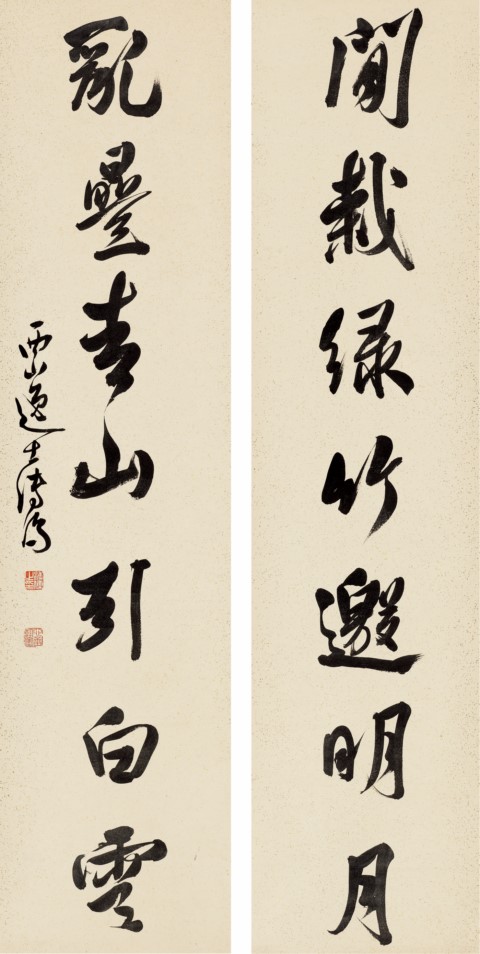 閒栽緑竹邀明月
亂疊青山引白雲
西山逸士溥儒